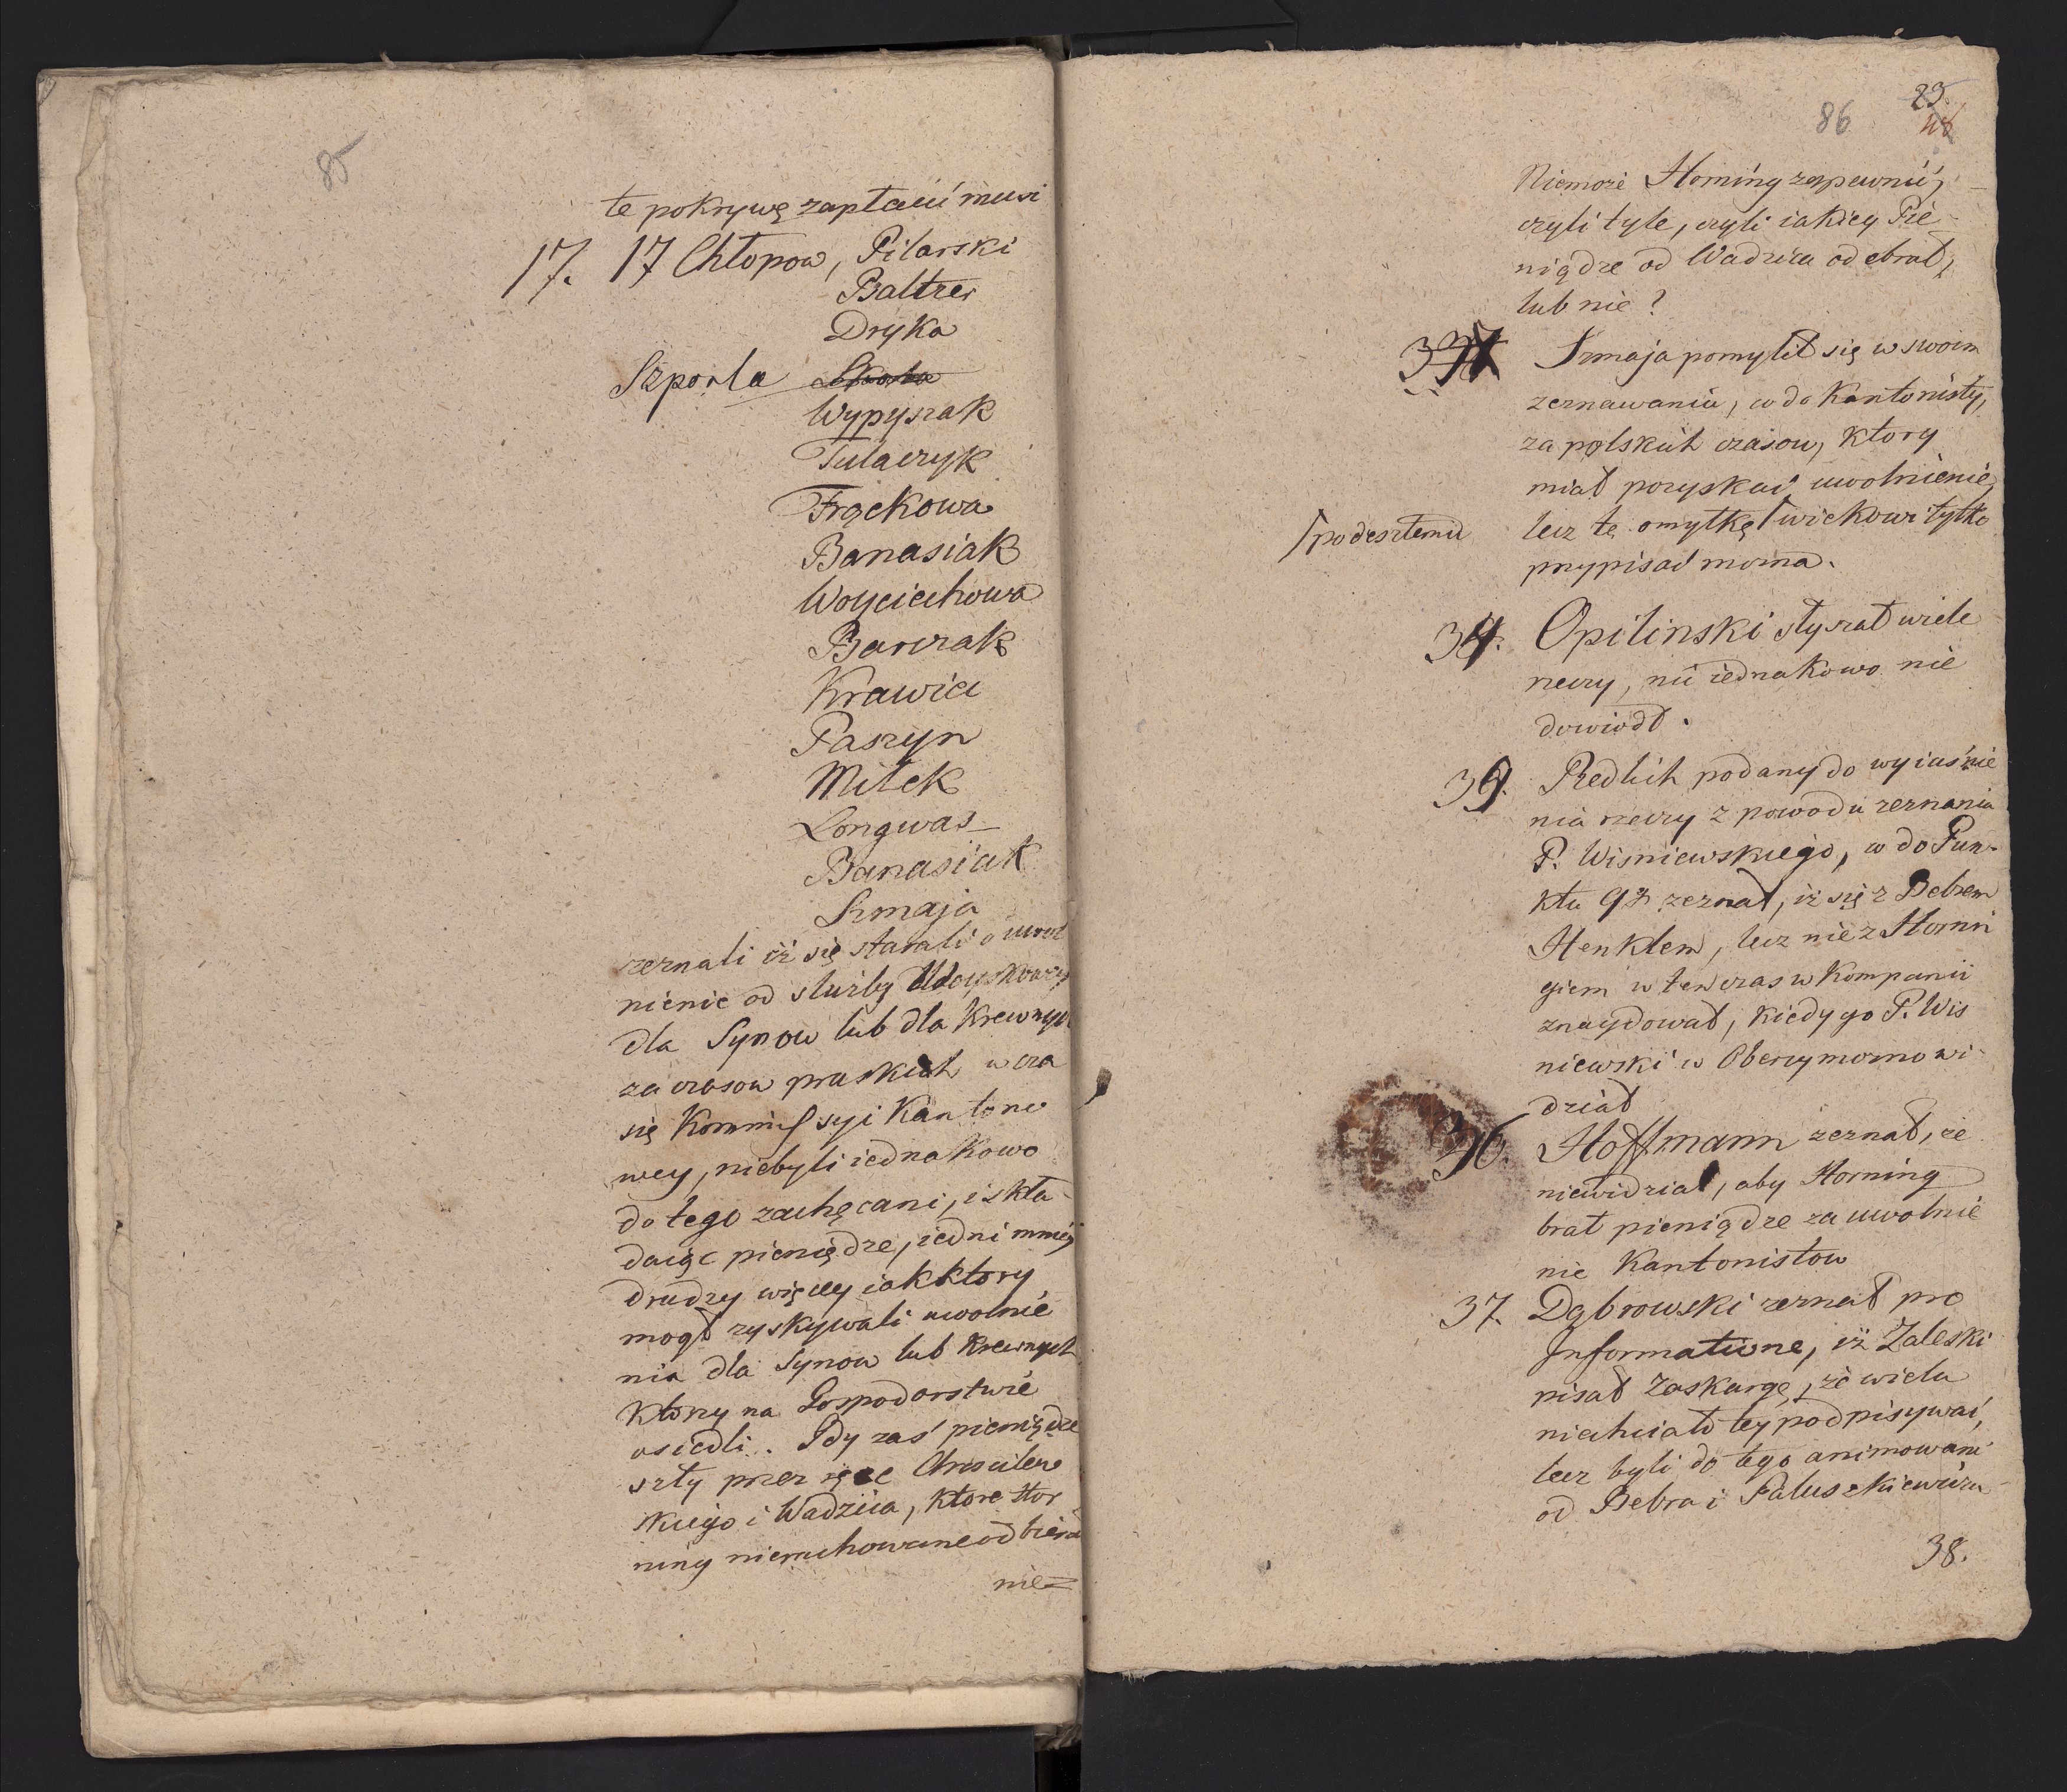 85
te pokrywę zapłacić musi
17. 17 Chłopow, Pilarski
Baltzer
Dryka
Szporla
Wypyszak
Tulaczyk
Frąckowa
Banasiak
Woyciechowa
Barczak
Krawiec
Paszyn
Miłek
Longwas
Banasiak
Szmaja
zeznali iż się starali o uwol
nienie od służby
dla Synow lub dla Krewnych
za czasow pruskich w cza
się Kommissyi Kantono
wey, niebyli iednakowo
do tego zachęcani, i skła
daiąc pieniędze, iedni mniey
drudzy więcey iak ktory
mogł zyskywali uwolnie
nia dla Synow lub Krewnych
ktorzy na Gospodarstwie
osiedli. Gdy zaś pieniędze
szły przez ręce Chroscilew
skiego i Wadzica, ktore Hor
ning nierachowane odbierał
nie=
86
23.
48
Niemoże Horning zapewnić,
czyli tyle, czyli iakiey Pie
niądze od Wadzica odebrał,
lub nie?
Szmaja pomylił się w swoim
zeznawaniu, co do Kantonisty,
za polskich czasow, ktory
miał pozyskać uwolnienie,
lecz tę omyłkę / wiekowi tylko
/ podeszłemu
przypisać można.
34. Opilinski słyszał wiele
rzeczy, nic iednakowo nie
dowiodł.
39. Redlich podany do wyiaśnie
nia rzeczy z powodu zeznania
P. Wisniewskiego, co do Pun-
ktu 9go zeznał, iż się z Bebrem
Henklem, lecz nie z Horni
giem w ten czas w Kompanii
znaydował, kiedy go P. Wis
niewski w Oberzy mowno wi-
dział
36. Hoffmann zeznał, że
niewidział, aby Horning
brał pieniądze za uwolnie
nie Kantonistow
37. Dąbrowski zeznał pro
Informatione, iż Zaleski
pisał Zaskargę, że wielu
niechciało tey podpisywać,
lecz byli do tego animowani
od Bebra i Paluszkiewicza
38.